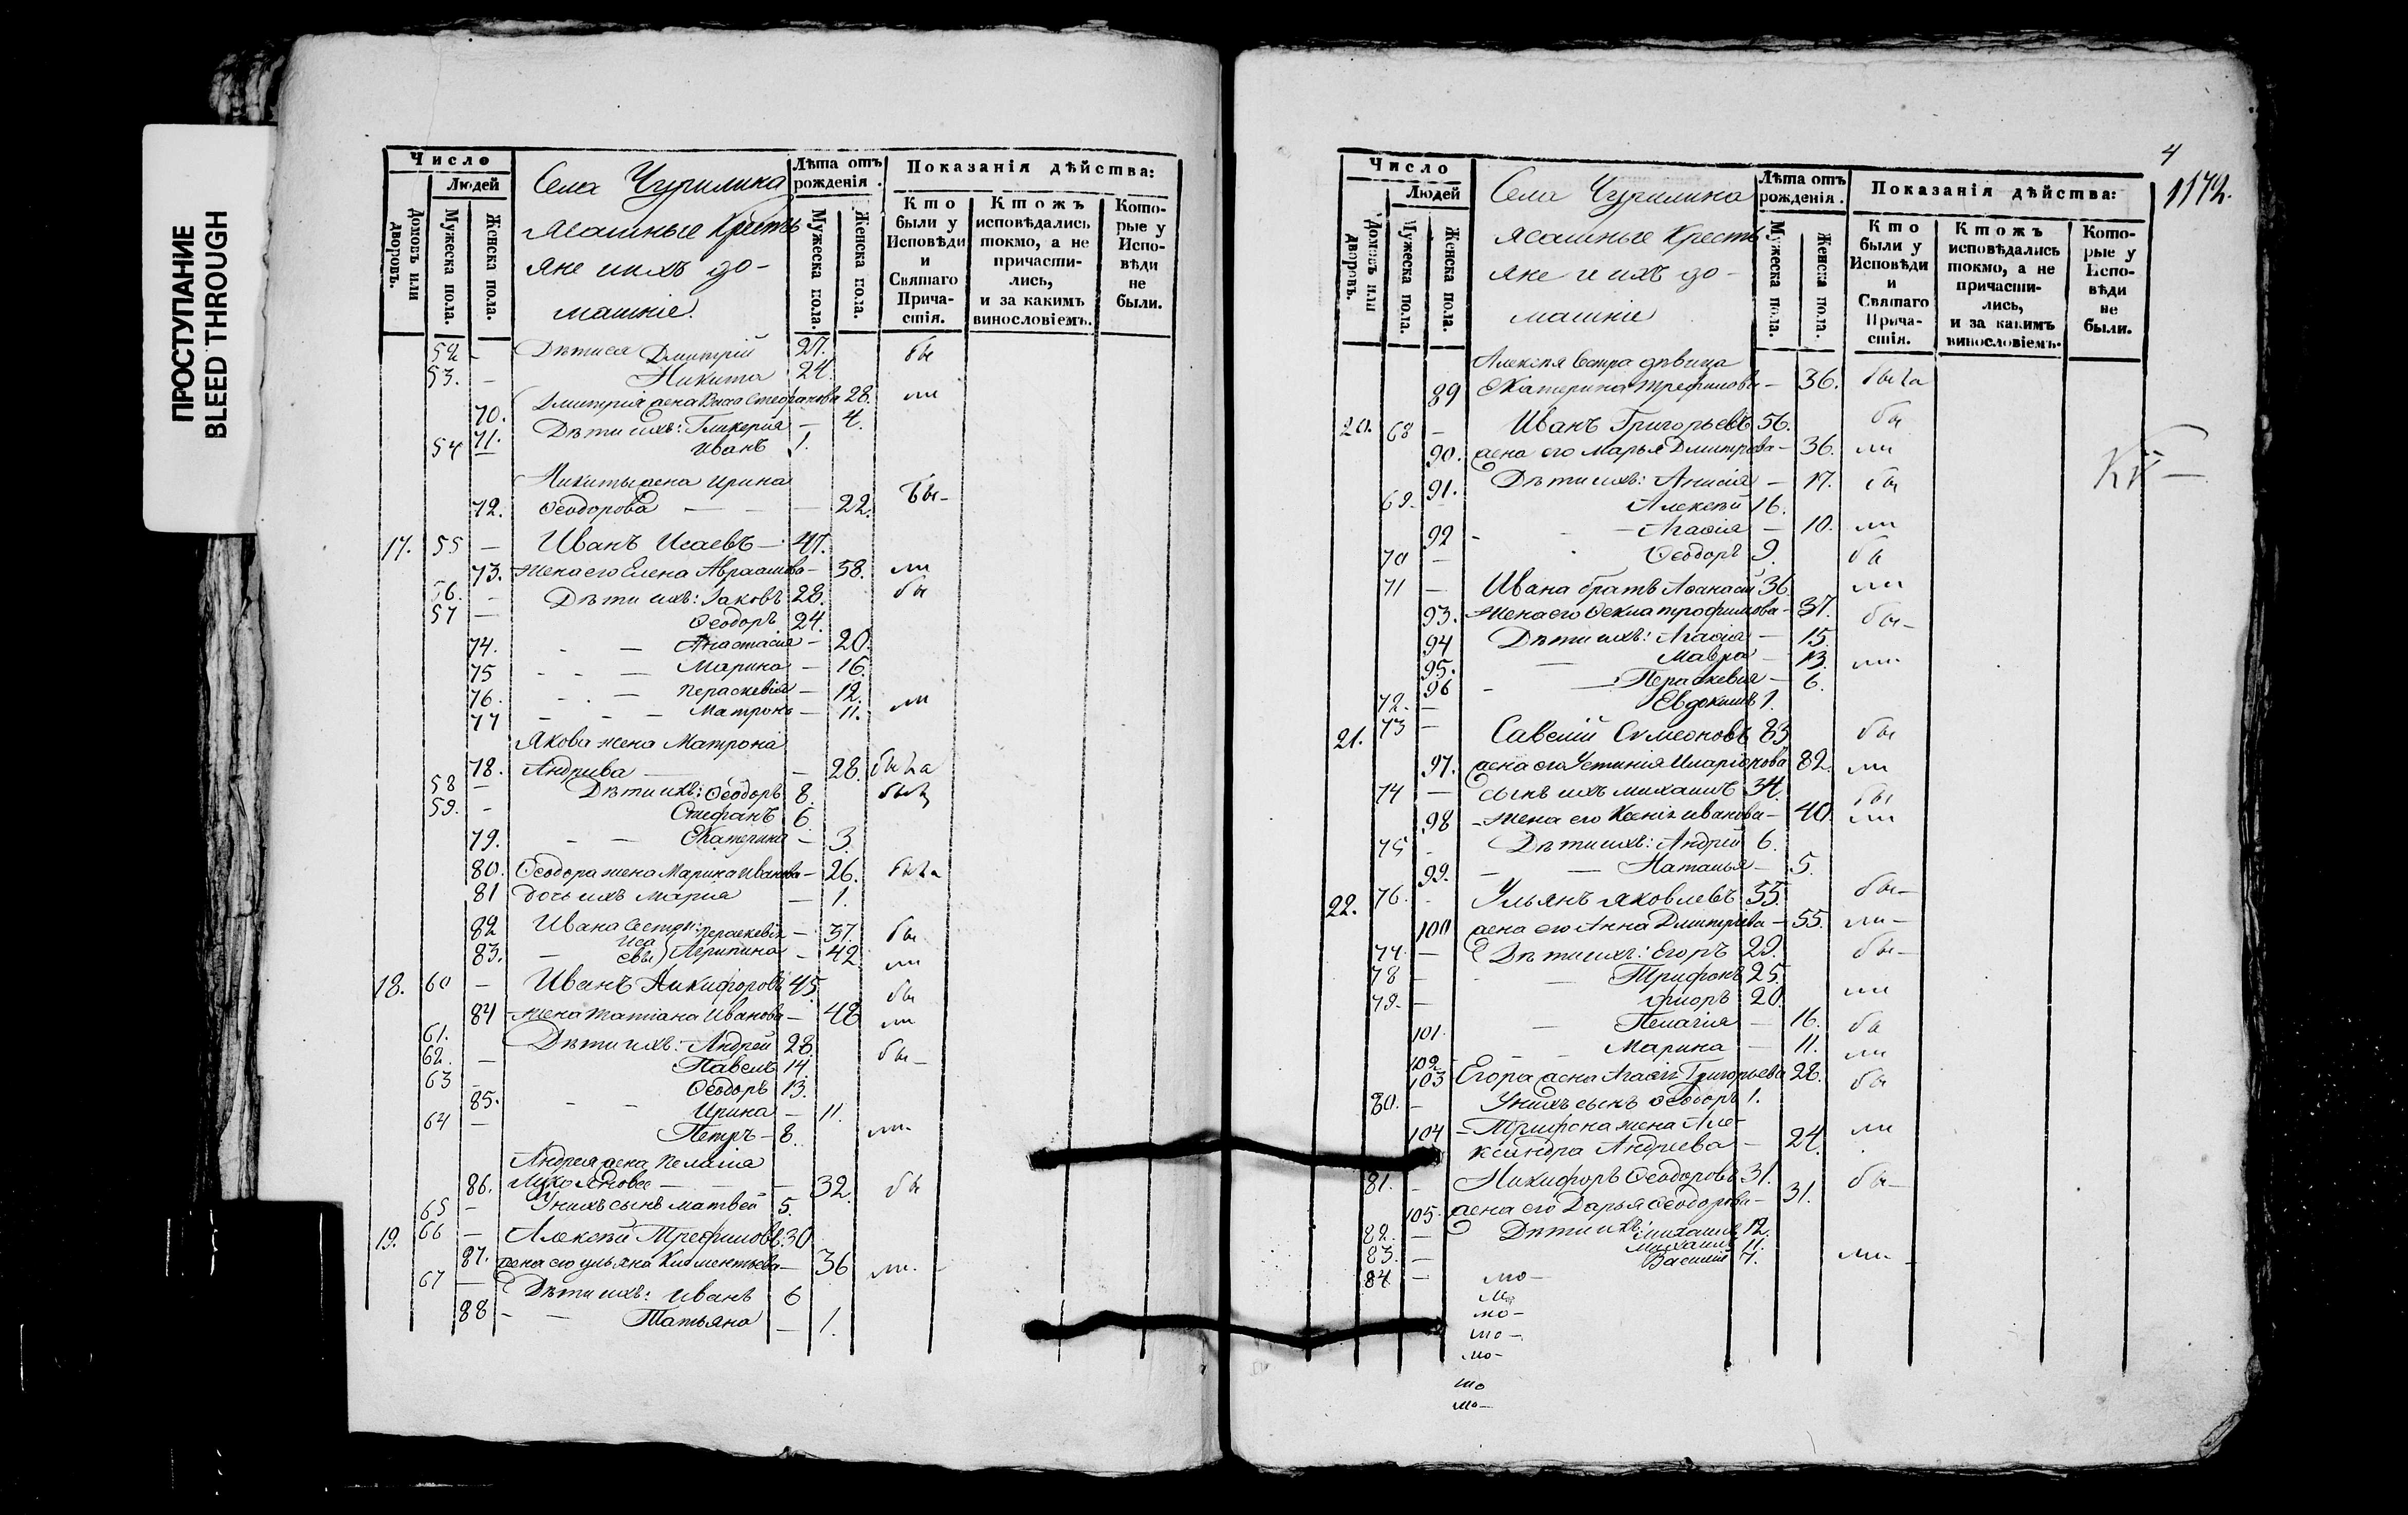 ПРОСТУПАНИЕ
BLEED THROUGH
Число
Людей
Домовъ или дворовъ.
Мужеска пола.
Женска пола.
Села Чурилина
ясашные Кресть
яне ихъ до-
машніе.
Лѣта отъ рожденія.
Мужеска пола.
Женска пола.
Показанія дѣйства:
Кто были у Исповѣди и Святаго Прича-стія.
Ктожъ исповѣдались токмо, а не причасти-лись, и за какимъ винословіемъ.
Кото-рые у Испо-вѣди не были.
52 - Дмитрій 27. бы
53. - Никита 24.
70. Дмитрія жена 28. ли
71. Дѣти ихъ: Гликерія - 4.
54 Иванъ 1.
Никиты жена Ирина
72. Ѳеодорова - - - 22. бы-
17. 55 - Иванъ Исаевъ - 47.
73. жена его Елена Авраамова - 58. ли
56. - Дѣти ихъ: Іаковъ 28. бы
57 - Ѳеодоръ 24.
74. - - Анастасія - 20.
75 - - - Марина - 16.
76. - - - Параскевія - 12.
77 - - - Матрона - 11. ли
Якова жена Матрона
78. Андреева - - 28. была
58 - Дѣти ихъ: Ѳеодоръ 8. былъ
59. - Стефанъ 6
79. - - Екатерина - 3.
80. Ѳеодора жена Марина Иванова - 26. была
81 дочь ихъ Марія - 1.
82 Ивана сестры: Параскевія - 37. бы
83. - Исаевы) Агрипина - 42. ли
18. 60 - Иванъ Никифоровъ 45. бы
84 жена Татіана Иванова - 48 ли
61. Дѣти ихъ: Андрей 28.
62. - Павелъ 14. бы -
63 - Ѳеодоръ 13.
85. - - Ирина - 11.
64 - Петръ - 8. ли-
Андрея жена Пелагія
86. - - - 32. бы
65 - У нихъ сынъ Матвей 5.
19. 66 - Алексѣй Трефиловъ 30
87. жена его Ульяна Климентьева - 36 ли. -
67 - Дѣти ихъ: Иванъ 6
88 - - Татьяна - 1.
4
1172.
Число
Людей
Домовъ или дворовъ.
Мужеска пола.
Женска пола.
Села Чурилина
ясашные Кресть
яне и ихъ до-
машніе
Лѣта отъ рожденія.
Мужеска пола.
Женска пола.
Показанія дѣйства:
Кто были у Исповѣди и Святаго Прича-стія.
Ктожъ исповѣдались токмо, а не причасти-лись, и за какимъ винословіемъ.
Кото-рые у Испо-вѣди не были.
Алексѣя сестра дѣвица
89 Екатерина Трефилова - 36. была
20. 68 - Иванъ Григорьевъ 56. бы
90. жена его Марья Дмитрева - 36. ли
91. Дѣти ихъ: Анисія - 17. бы
69. - Алексѣй 16.
92 - - Агафія - 10. ли
70 - Ѳеодоръ 9. бы
71 - Ивана братъ Аѳанасій 36. ли
93. жена его Ѳекла Трофимова - 37. бы-
94 Дѣти ихъ: Агафія - 15.
95. - Мавра - 13. ли-
96 - - Параскевія - 6.
72. - Евдокимъ 1.
21. 73 - Савелій Симеоновъ 83 бы
97. жена его Устинія Иларіонова 82. ли
74 - сынъ ихъ Михаилъ 34. бы
98 - жена его Ксенія Иванова - 40. ли
75 - Дѣти ихъ: Андрей 6.
99. - - Наталья - 5.
22. 76. - Ульянъ Яковлевъ 55. бы-
100 жена его Анна Дмитріева - 55. ли-
77. - Дѣти ихъ: Егоръ 29. бы-
78 - - Трифонъ 25.
79. - 20. ли
101. - Пелагія - 16. бы
102 - - Марина - 11. ли
103 Егора жена Агафія Григорьева 28. бы
80. - У нихъ сынъ Ѳеодоръ 1.
104 - Трифона жена Але- ли
ксандра Андреева - 24.
81. - Никифоръ Ѳеодоровъ 31. бы-
105. жена его Дарья Ѳеодорова - 31.
82. - Дѣти ихъ: Михаилъ 12.
83. - Михаилъ 11.
84 - Василій 7. ли-